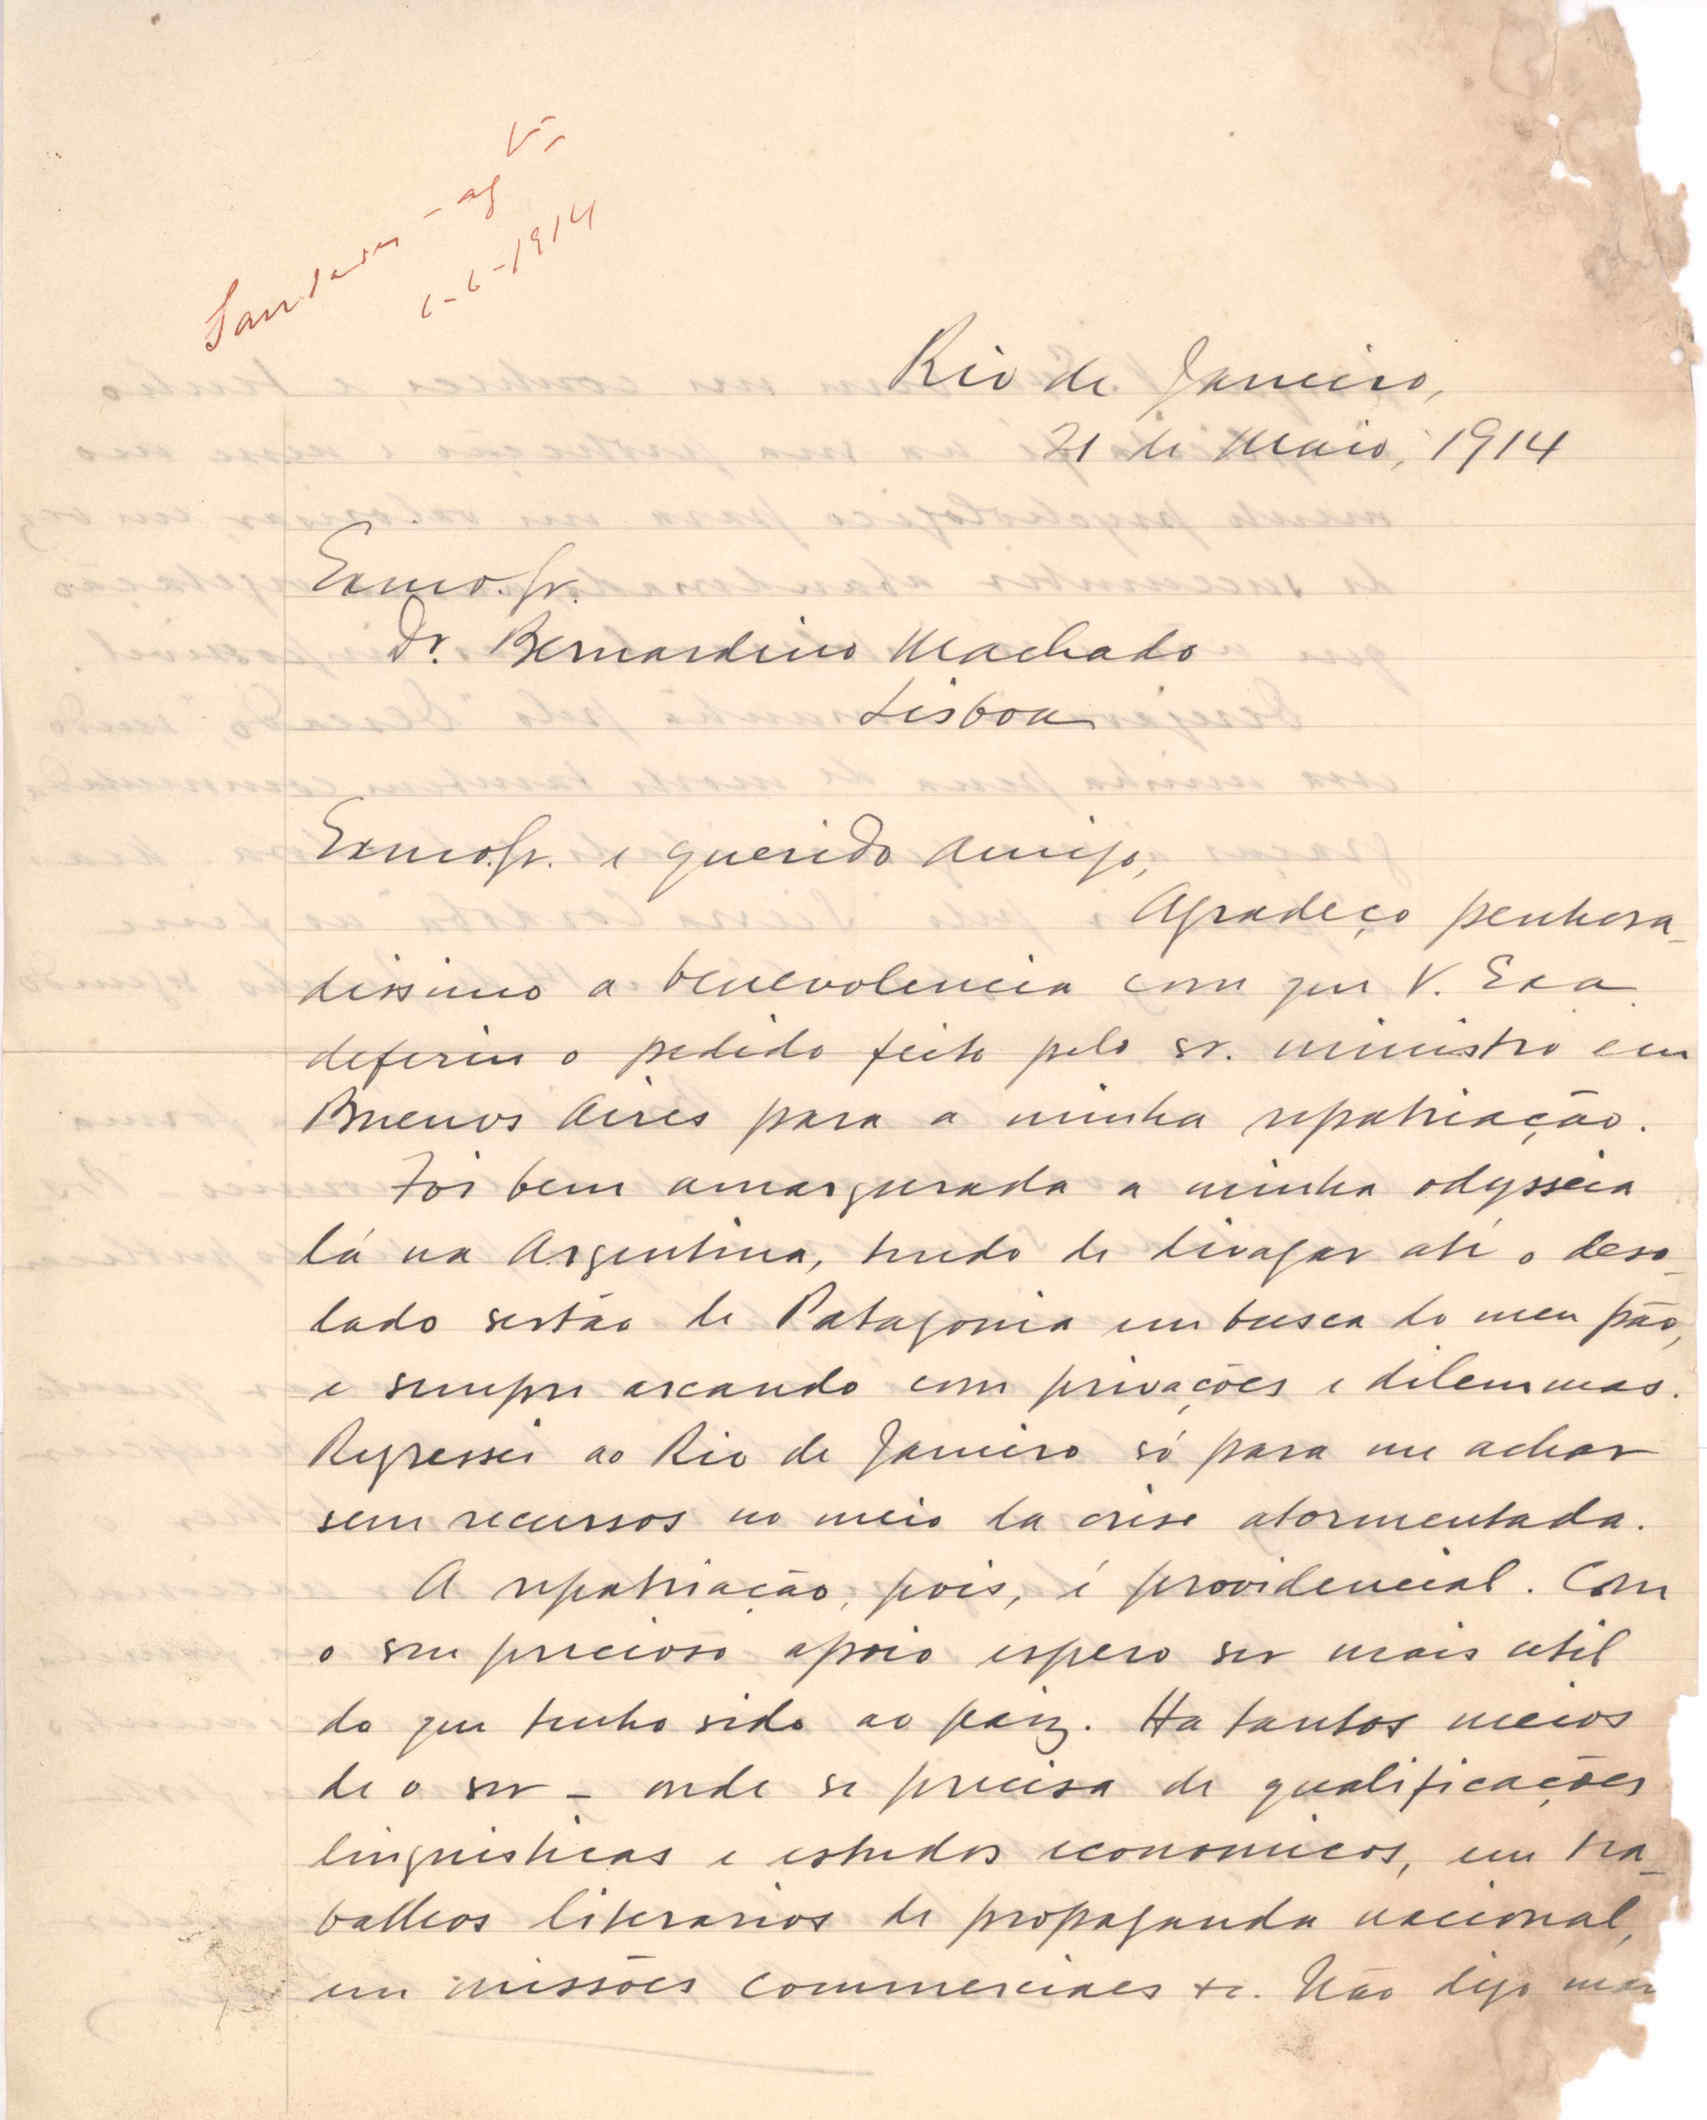 Saudades - ag
6-6-1914
Rio de Janeiro,
21 de Maio, 1914
Exmo. Sr.
Dr. Bernardino Machado
Lisboa
Exmo. Sr. e querido amigo,
Agradeço penhora-
dissimo a benevolencia com que V. Exa.
deferiu o pedido feito pelo sr. ministro em
Buenos Aires para a minha repatriação.
Foi bem amargurada a minha odysseia
lá na Argentina, tendo de divagar até o deso-
lado sertão de Patagonia em busca do meu pão,
e sempre arcando com privações e dilemmas.
Regressei ao Rio de Janeiro só para me achar
sem recursos no meio da crise atormentada.
A repatriação, pois, é providencial. Com
o seu precioso apoio espero ser mais util
do que tenho sido ao paiz. Ha tantos meios
de o ser - onde se precisa de qualificações
linguisticas e estudos economicos, em tra-
balhos literarios de propaganda nacional,
em missões commerciaes &c. Não digo mais